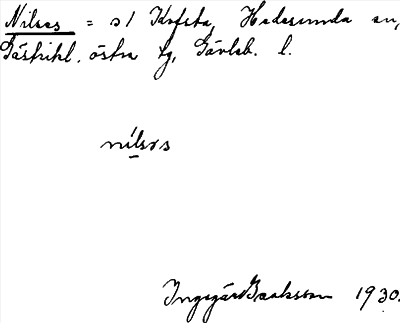 Nilsos = s/ Kofsta, Hedesunda sn,
Gästrikl. östra tg, Gävleb. l.
nilsos
Ingegärd Isaksson 1930.